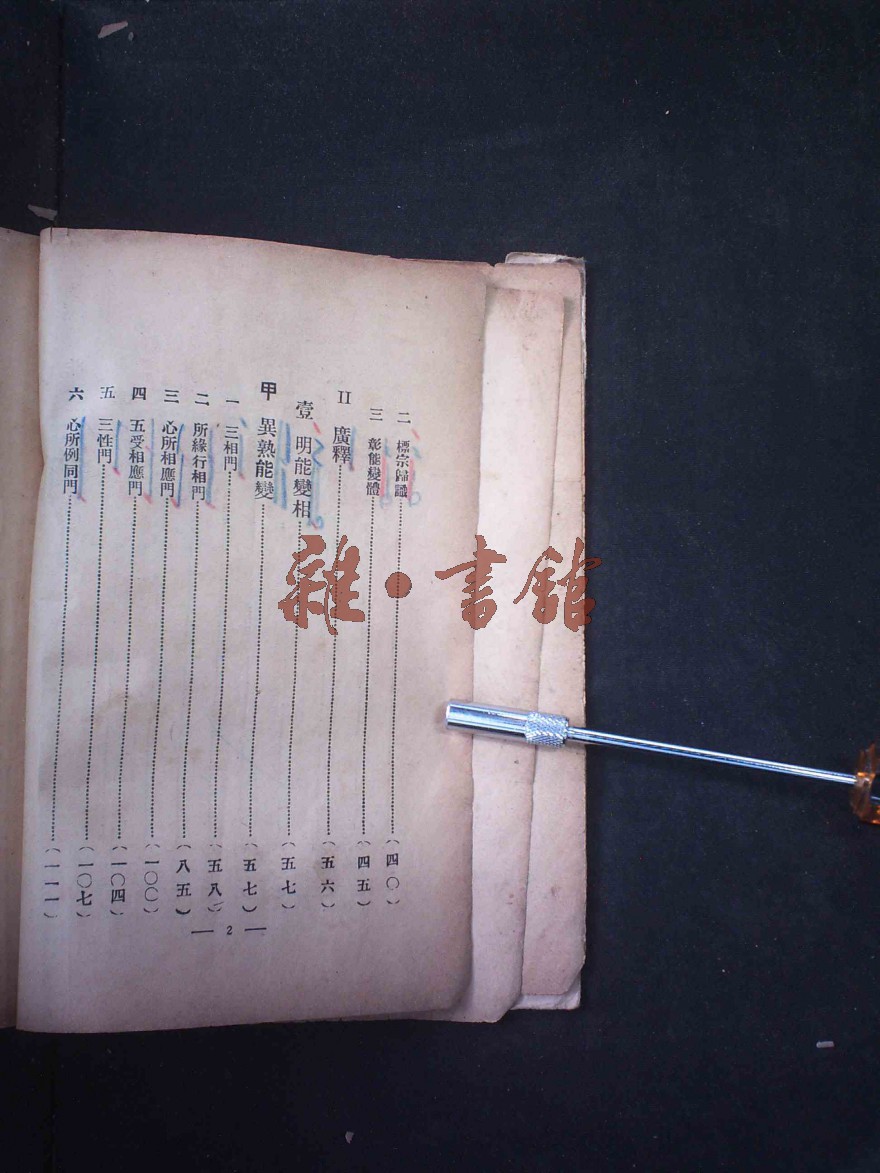 二 標宗歸識……(四〇)
三 彰能變體……(四五)
II 廣釋……(五六)
壹 明能變相……(五七)
甲 異熟能變……(五七)
一 三相門……(五八)
二 所緣行相門……(八五)
三 心所相應門……(一〇〇)
四 五受相應門……(一〇四)
五 三性門……(一〇七)
六 心所例同門……(一一一)
— 2 —
雜·書館